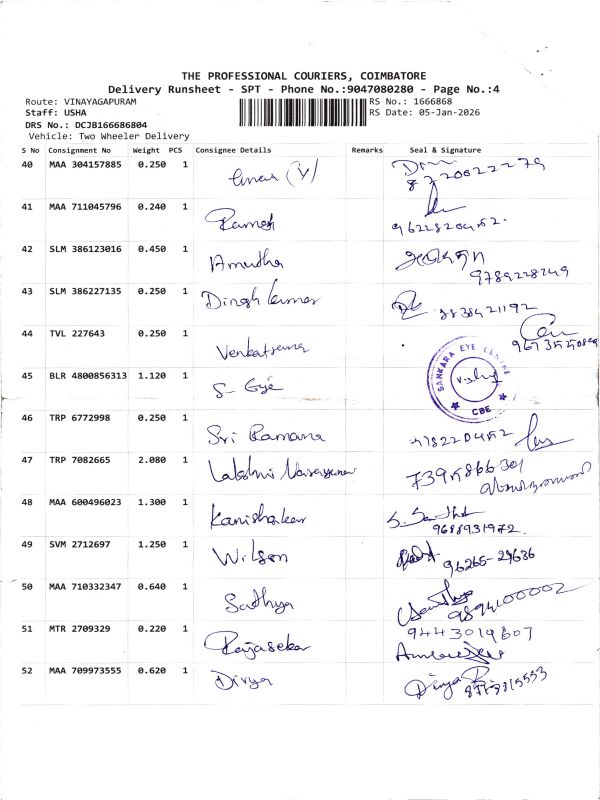 THE PROFESSIONAL COURIERS, COIMBATORE
Delivery Runsheet - SPT - Phone No.:9047080280 - Page No.:4
Route: VINAYAGAPURAM
RS No.: 1666868
Staff: USHA
RS Date: 05-Jan-2026
DRS No.: DCJB166686804
Vehicle: Two Wheeler Delivery
S No Consignment No Weight PCS Consignee Details Remarks Seal & Signature
40 MAA 304157885 0.250 1
41 MAA 711045796 0.240 1 Ramesh
42 SLM 386123016 0.450 1 Amutha
9789228749
43 SLM 386227135 0.250 1 Dinesh Kumar
44 TVL 227643 0.250 1
45 BLR 4800856313 1.120 1 S- Eye SANKARA EYE CENTRE CBE
46 TRP 6772998 0.250 1 Sri Ramana
47 TRP 7082665 2.080 1 Lakshmi Narayanan
48 MAA 600496023 1.300 1
9688931972
49 SVM 2712697 1.250 1 Wilson 96265-29636
50 MAA 710332347 0.640 1 Sathya 9894100002
51 MTR 2709329 0.220 1 Rajasekar 9443019607
52 MAA 709973555 0.620 1 Divya Divya